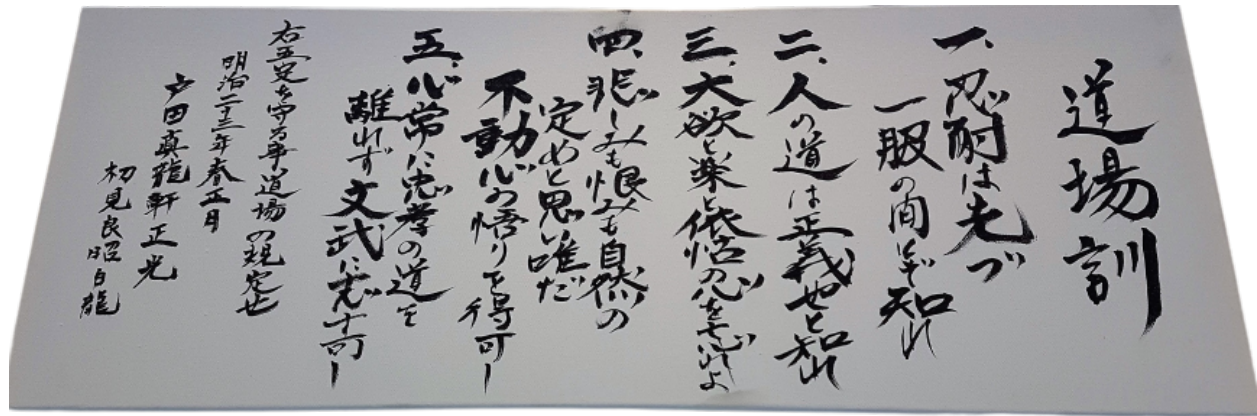 道場訓
一、忍耐は先づ
一服の間とぞ知れ
二、人の道は正義也と知れ
三、大欲と楽と依怙の心を忘れよ
四、悲しみも恨みも自然の
定めと思い唯だ
不動心の悟りを得可し
五、心常に忠孝の道を
離れず文武に志す可し
右五定を守る事道場の規定也
明治二十三年春正月
戸田真龍軒正光
初見良昭白龍